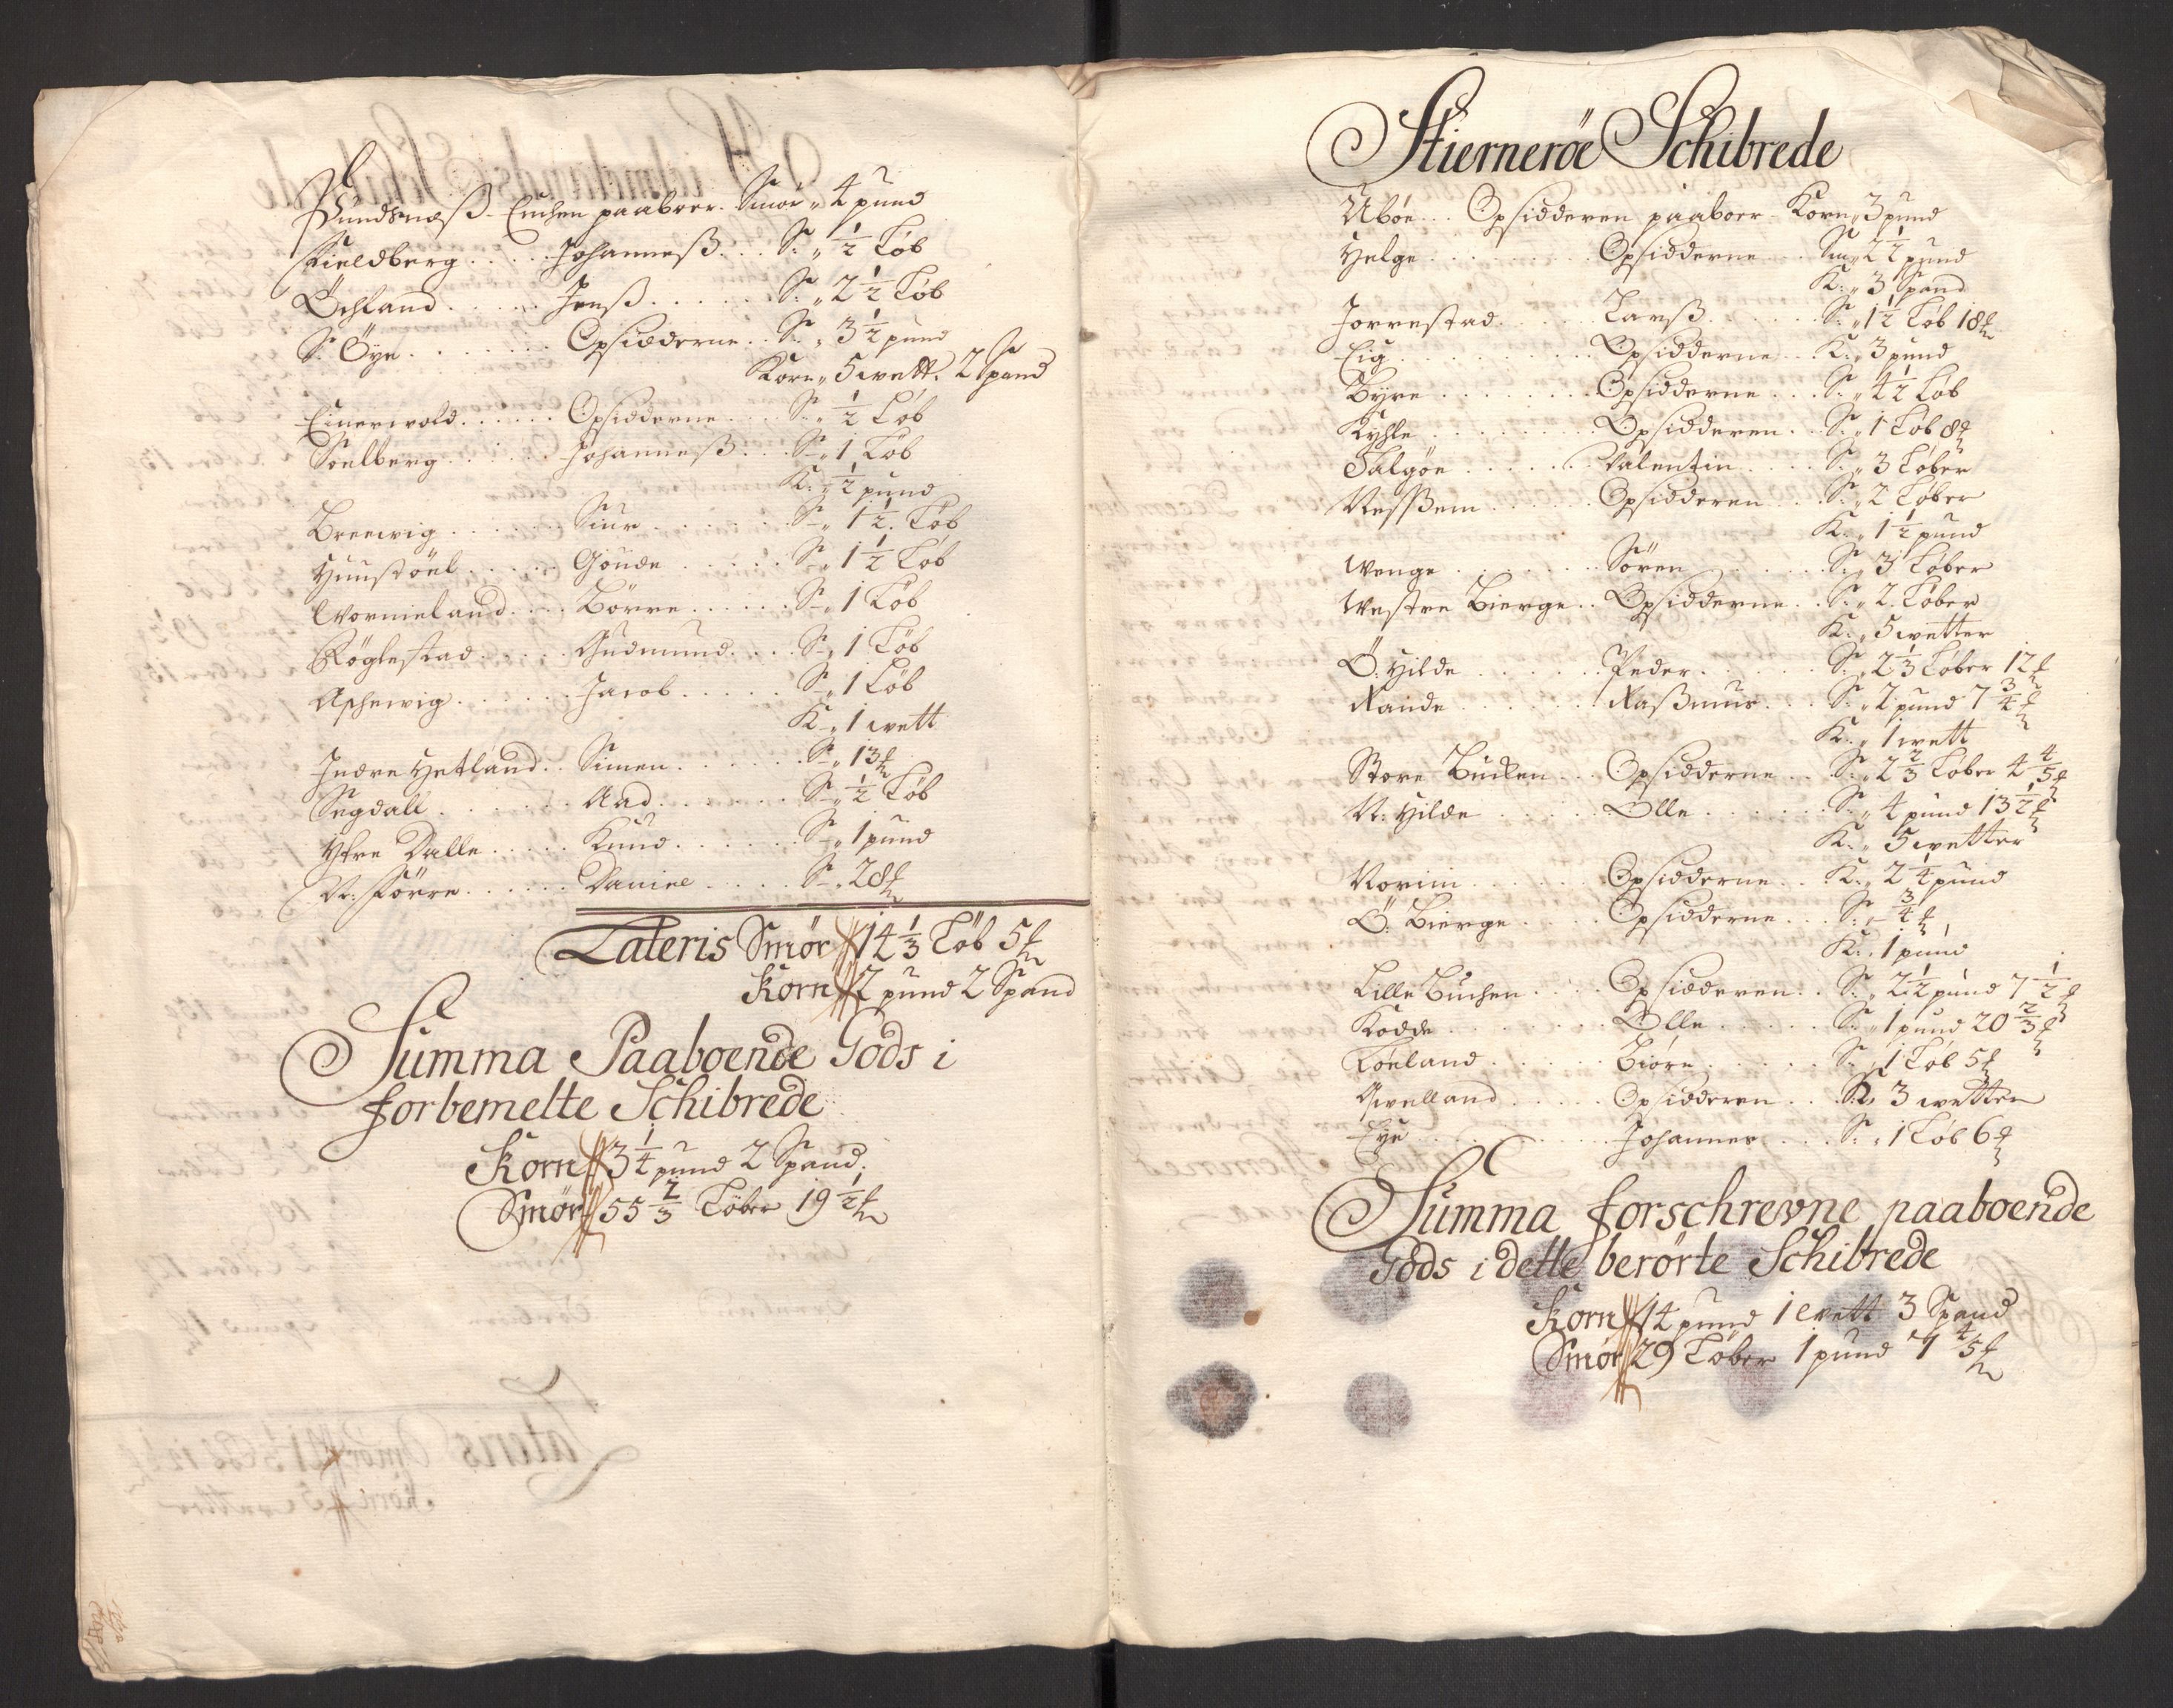 Pundsnæß Enchen paaboer Smør „ 4 pund
Fieldberg ..... Johanneß ... S: „ 1/2 Løb
Öchland ..... Jenß ..... S: „ 2 1/2 Løb
S. Öye ..... Opsidderne .. S: „ 3 1/2 pund
Korn „ 5 wett. 2 Spand
Einerwold ..... Opsidderne ... S: „ 1/2 Løb
Soelberg ..... Johanneß ... S: „ 1 Løb
K: „ 1/2 pund
Breewig ..... Siur ..... S: „ 1 1/2 Løb
Hunstöel ..... Gounde ..... S: „ 1 1/2 Løb
Wormeland .... Börre ..... S: „ 1 Løb
Røglestad ..... Gudmund ... S: „ 1 Løb
Aschewig ..... Jacob ..... S: „ 1 Løb
K: „ 1 wett
Indre Hetland .. Simen ..... S: „ 13 ℔
Segdall ..... Aad ..... S: „ 1/2 Løb
Yttre Dalle ..... Knud ..... S: „ 1 pund
N: Førre ..... Daniel ..... S: „ 28 ℔
Lateris Smør 14 1/3 Løb 5 ℔
Korn 2 pund 2 Spand
Summa Paaboende Gods i
forbemelte Schibrede
Korn 3 1/4 pund 2 Spand.
Smør 55 2/3 Løber 19 1/2 ℔
Stiernerøe Schibrede
Ubøe ... Opsidderen paaboer Korn „ 3 pund
Helge ..... Opsidderne ... Sm „ 2 1/2 pund
K: „ 3 Spand
Jorrestad ..... Larß ..... S: „ 1 1/2 Løb 18 ℔
Eig ..... Opsidderne ... K: „ 3 pund
Byre ..... Opsidderne ... S: „ 4 1/2 Løb
Kyhle ..... Opsidderen .. S: „ 1 Løb 8 ℔
Talgøe ..... Valentin ..... S: „ 3 Løber
Nessem ..... Opsidderen ... S: „ 2 Løber
K: „ 1 1/2 pund
Wenge ..... Sören ..... S: „ 3 Løber
Westre Bierge .. Opsidderne .. S: „ 2 Løber
K: „ 5 wetter
Ö: Hilde ..... Peder ..... S: „ 2 1/3 Løber 12 ℔
Rande ..... Raßmus ... S: „ 2 pund 7 3/4 ℔
K: „ 1 wett
Store Bucken ... Opsidderne .. S: „ 2 2/3 Løber 4 4/5 ℔
N: Hilde ..... Olle ..... S: „ 4 pund 13 1/2 ℔
K: „ 5 wetter
Norim ..... Opsidderne .. K: „ 2 1/4 pund
Ö: Bierge ..... Opsidderne ... S: „ 3/4 ℔
K: „ 1 pund
Lille Buchen .... Opsidderen .. S: „ 2 1/2 pund 7 1/2 ℔
Kodde ..... Olle ..... S: „ 1 pund 20 2/3 ℔
Løeland ..... Biørn ..... S: „ 1 Løb 5 ℔
Awelland ..... Opsidderen ... K: 3 wetter
Eye ..... Johannes ... S: „ 1 Løb 6 ℔
Summa forschrevne paaboende
Gods i dette berørte Schibrede
Korn 14 pund 1 wett 3 Spand
Smør 29 Løber 1 pund 7 4/5 ℔